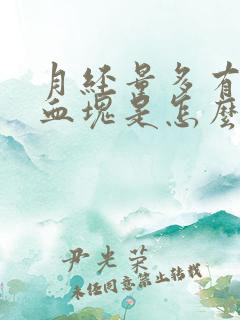 月经量多有
血塊是怎麽
尹光荣
未经同意禁止转载